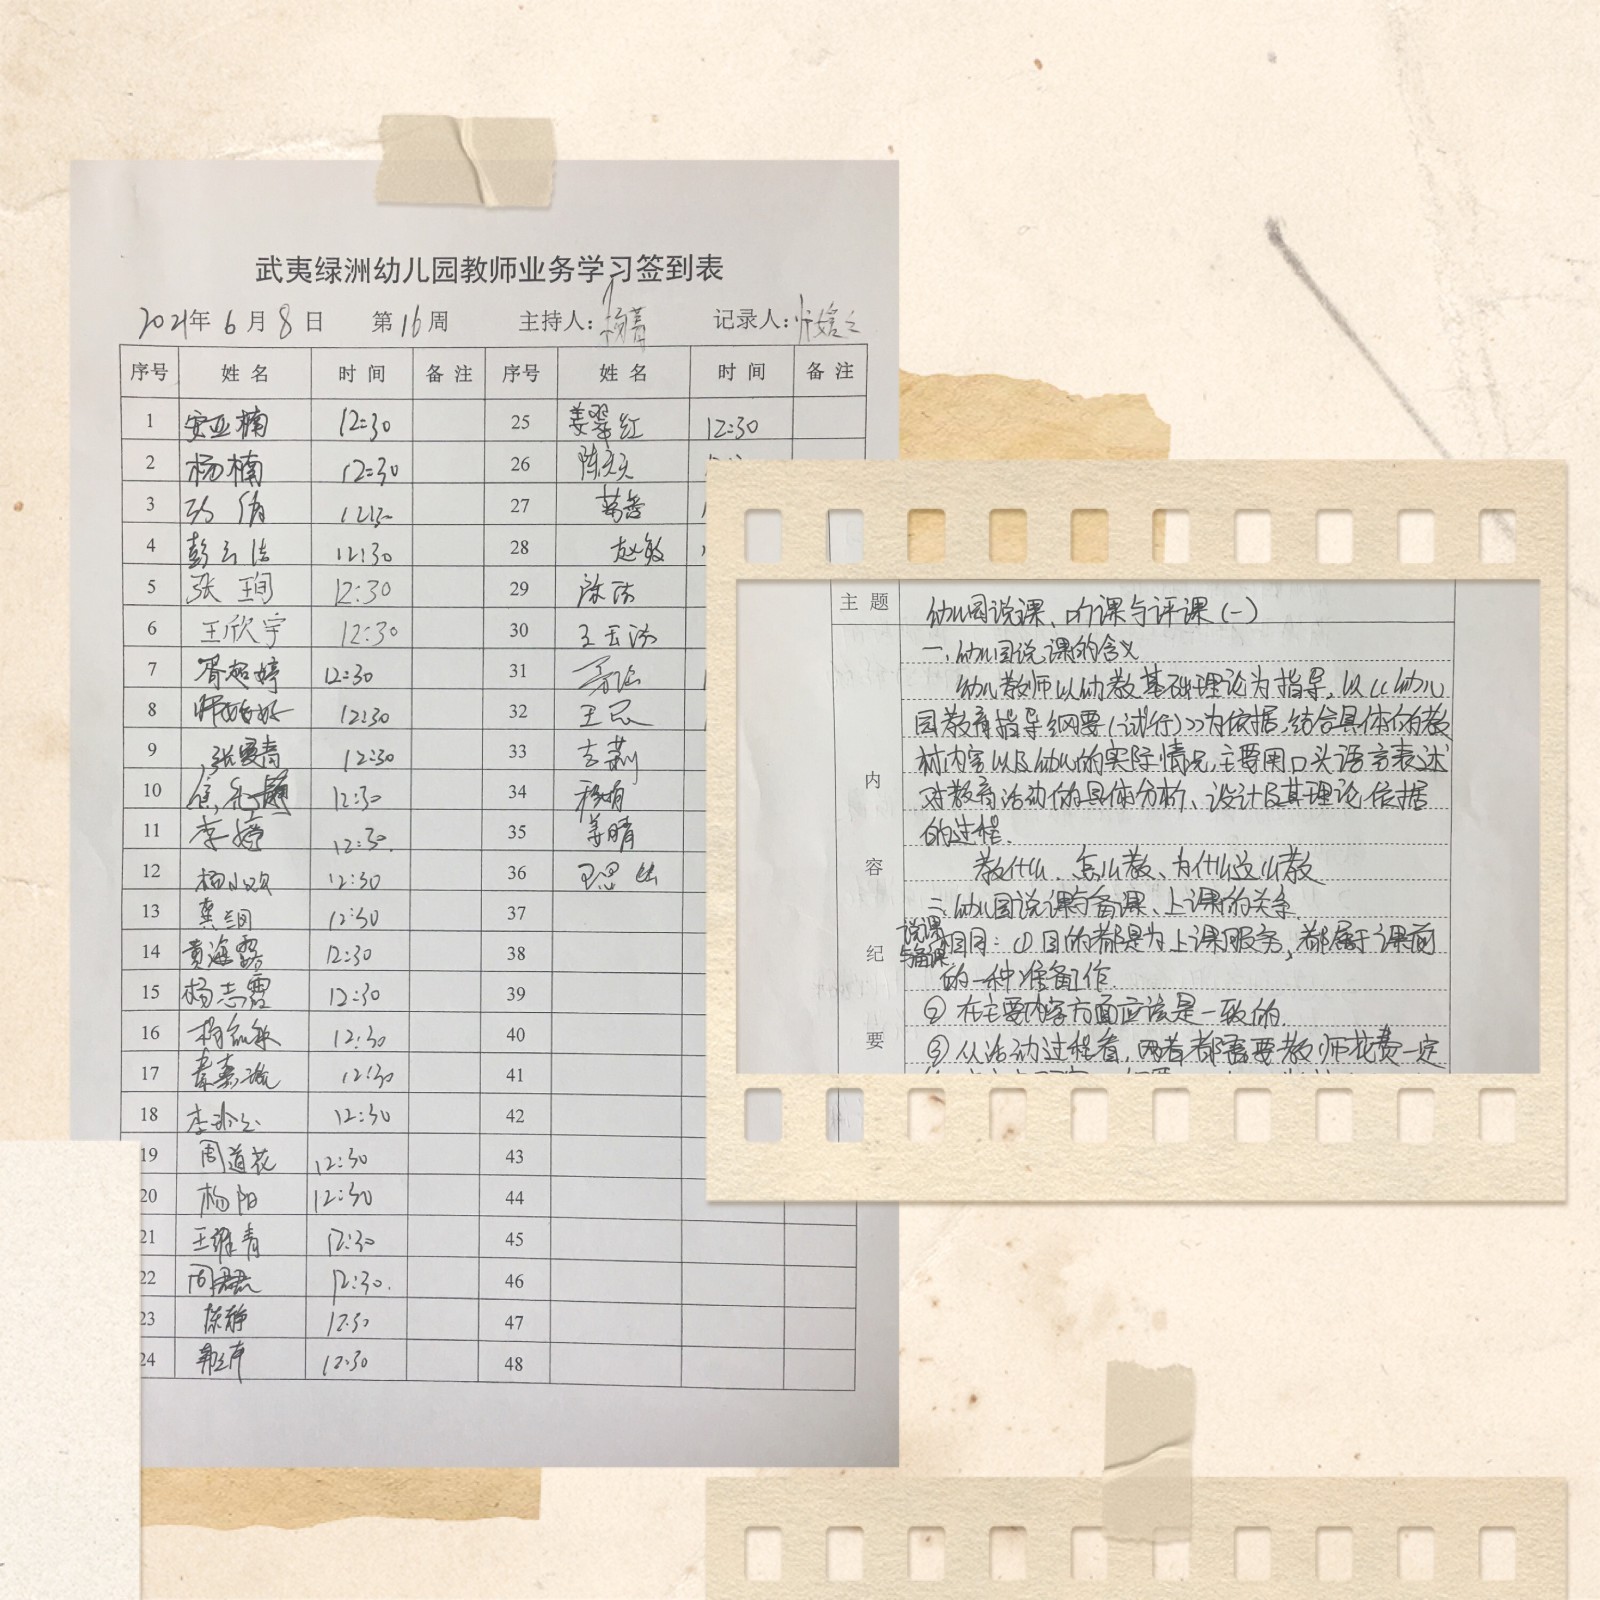 武夷绿洲幼儿园教师业务学习签到表
2021年 6 月 8 日 第 16 周 主持人: 杨青 记录人:
序号 姓 名 时 间 备 注 序号 姓 名 时 间 备 注
1 安亚楠 12:30 25 姜翠红 12:30
2 杨楠 12:30 26 陈元元
3 12:30 27
4 彭云洁 12:30 28 赵敏
5 张珣 12:30 29
6 王欣宇 12:30 30 王云
7 胥超婷 12:30 31
8 12:30 32 王
9 张爱青 12:30 33 吉莉
10 12:30 34 杨
11 李婷 12:30. 35 姜晴
12 杨小双 12:30 36 王思
13 龚 12:30 37
14 黄海露 12:30 38
15 杨志霞 12:30 39
16 杨 12:30 40
17 12:30 41
18 李 12:30 42
19 周道花 12:30 43
20 杨阳 12:30 44
21 王维青 12:30 45
22 周君 12:30. 46
23 陈静 12:30 47
24 12:30 48
主 题 幼儿园说课、听课与评课(一)
内 容 纪 要
一.幼儿园说课的含义
幼儿教师以幼教基础理论为指导,以《幼儿
园教育指导纲要(试行)》为依据,结合具体的教
材内容以及幼儿的实际情况,主要用口头语言表述
对教育活动的具体分析、设计及其理论依据
的过程.
教什么.怎么教、为什么这么教
二.幼儿园说课与备课、上课的关系.
说课与备课 相同:①目的都是为上课服务,都属于课前
的一种准备工作.
②在主要内容方面应该是一致的.
③从活动过程看,两者都需要教师花费一定